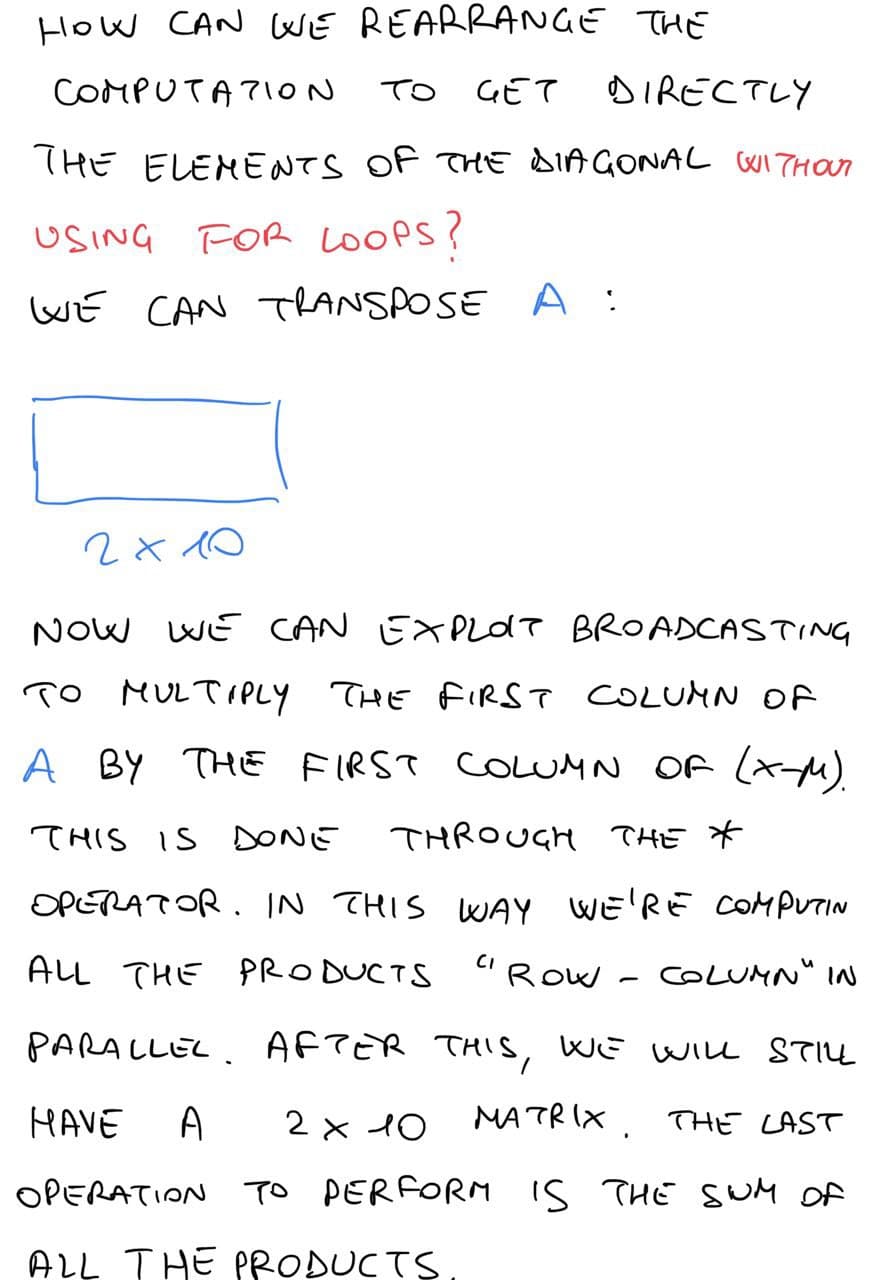 HOW CAN WE REARRANGE THE
COMPUTATION TO GET DIRECTLY
THE ELEMENTS OF THE DIAGONAL WITHOUT
USING FOR LOOPS?
WE CAN TRANSPOSE A :
2 x 10
NOW WE CAN EXPLOIT BROADCASTING
TO MULTIPLY THE FIRST COLUMN OF
A BY THE FIRST COLUMN OF (X-μ).
THIS IS DONE THROUGH THE *
OPERATOR. IN THIS WAY WE'RE COMPUTIN
ALL THE PRODUCTS "ROW - COLUMN" IN
PARALLEL. AFTER THIS, WE WILL STILL
HAVE A 2 x 10 MATRIX. THE LAST
OPERATION TO PERFORM IS THE SUM OF
ALL THE PRODUCTS.